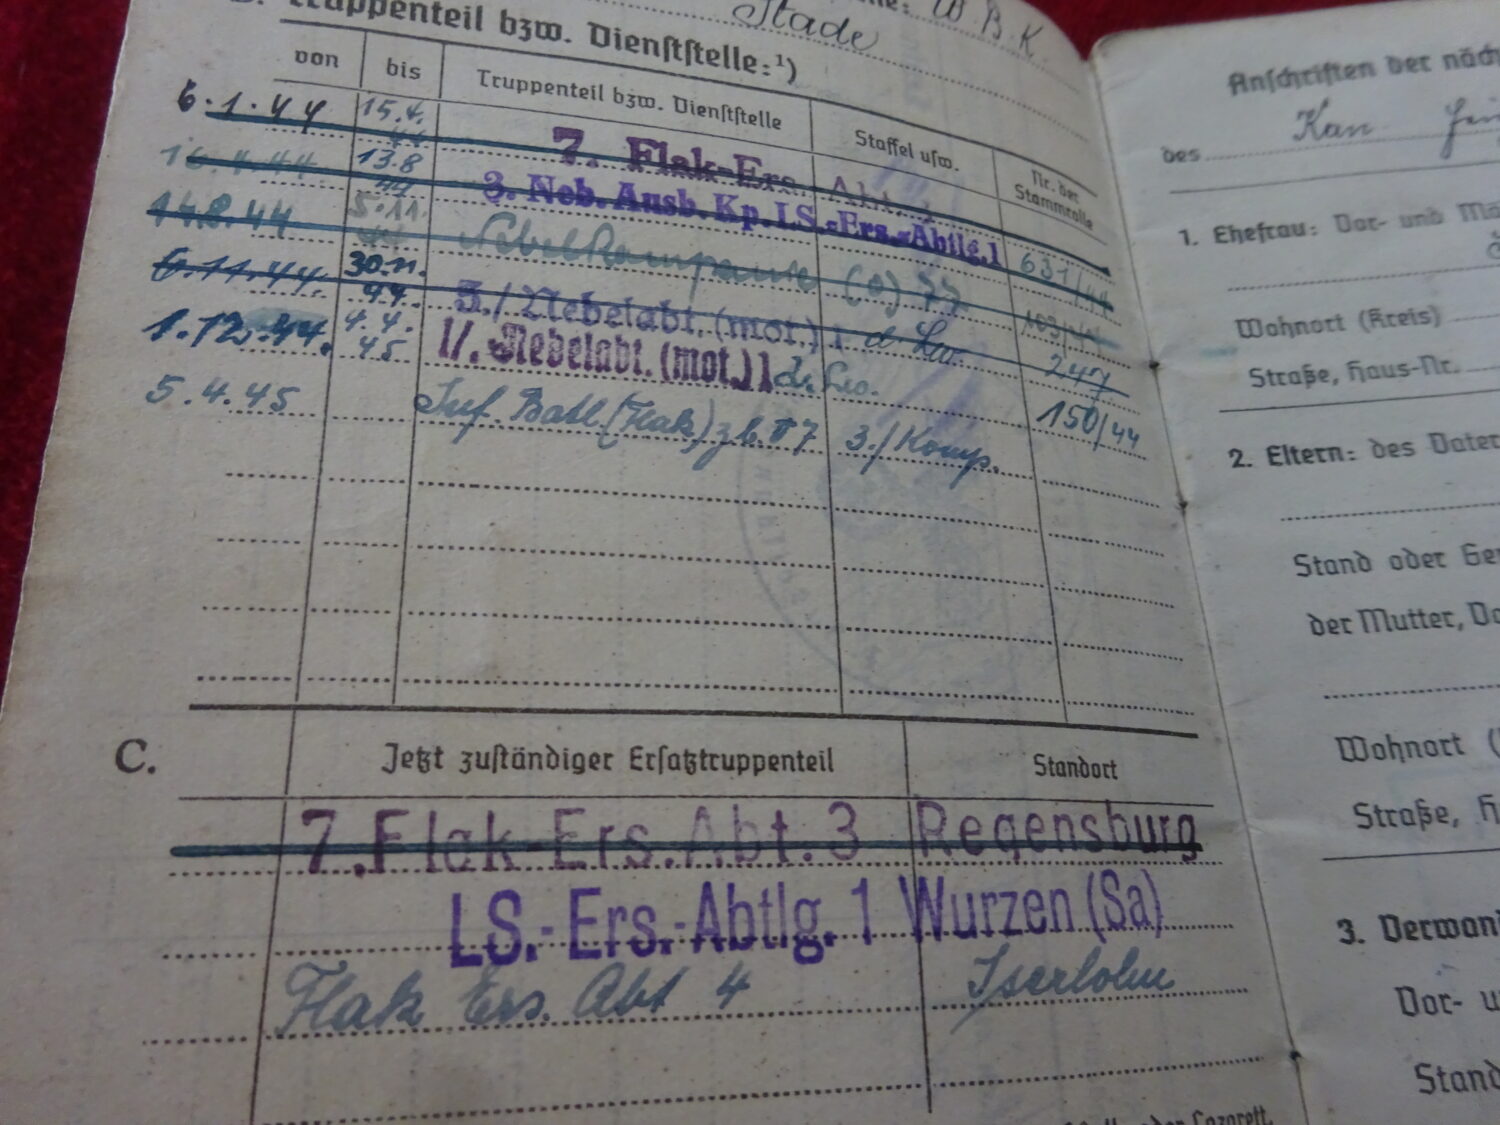 Stade W. B. K.
Truppenteil bzw. Dienststelle:¹)
von bis Truppenteil bzw. Dienststelle Staffel usw. Nr. der Stammrolle
6.1.44 15.4. 44 7. Flak-Ers. Abt. 3 631/44
16.4.44 13.8 44 3. Neb. Ausb. Kp. LS.-Ers.-Abtlg. 1
14.8.44 5.11. 44 Nebelkompanie (o) 103/44
6.11.44. 30.11. 44. 3./Nebelabt. (mot.) 1 d. Lw. 247
1.12.44. 4.4. 45 1/. Nebelabt. (mot.) 1 d. Lw. 150/44
5.4.45 Inf. Batl. (Flak) z.b.V 7 3./Komp.
C. Jetzt zuständiger Ersatztruppenteil Standort
7. Flak-Ers. Abt. 3 Regensburg
LS.-Ers.-Abtlg. 1 Wurzen (Sa)
Flak Ers. Abt 4 Iserlohn
Lazarett.
Anschriften der
des
1. Ehefrau: Vor- und
Wohnort (Kreis)
Straße, Haus-Nr.
2. Eltern: des
Stand oder
der Mutter,
Wohnort
Straße,
3.
Vor-
Stand